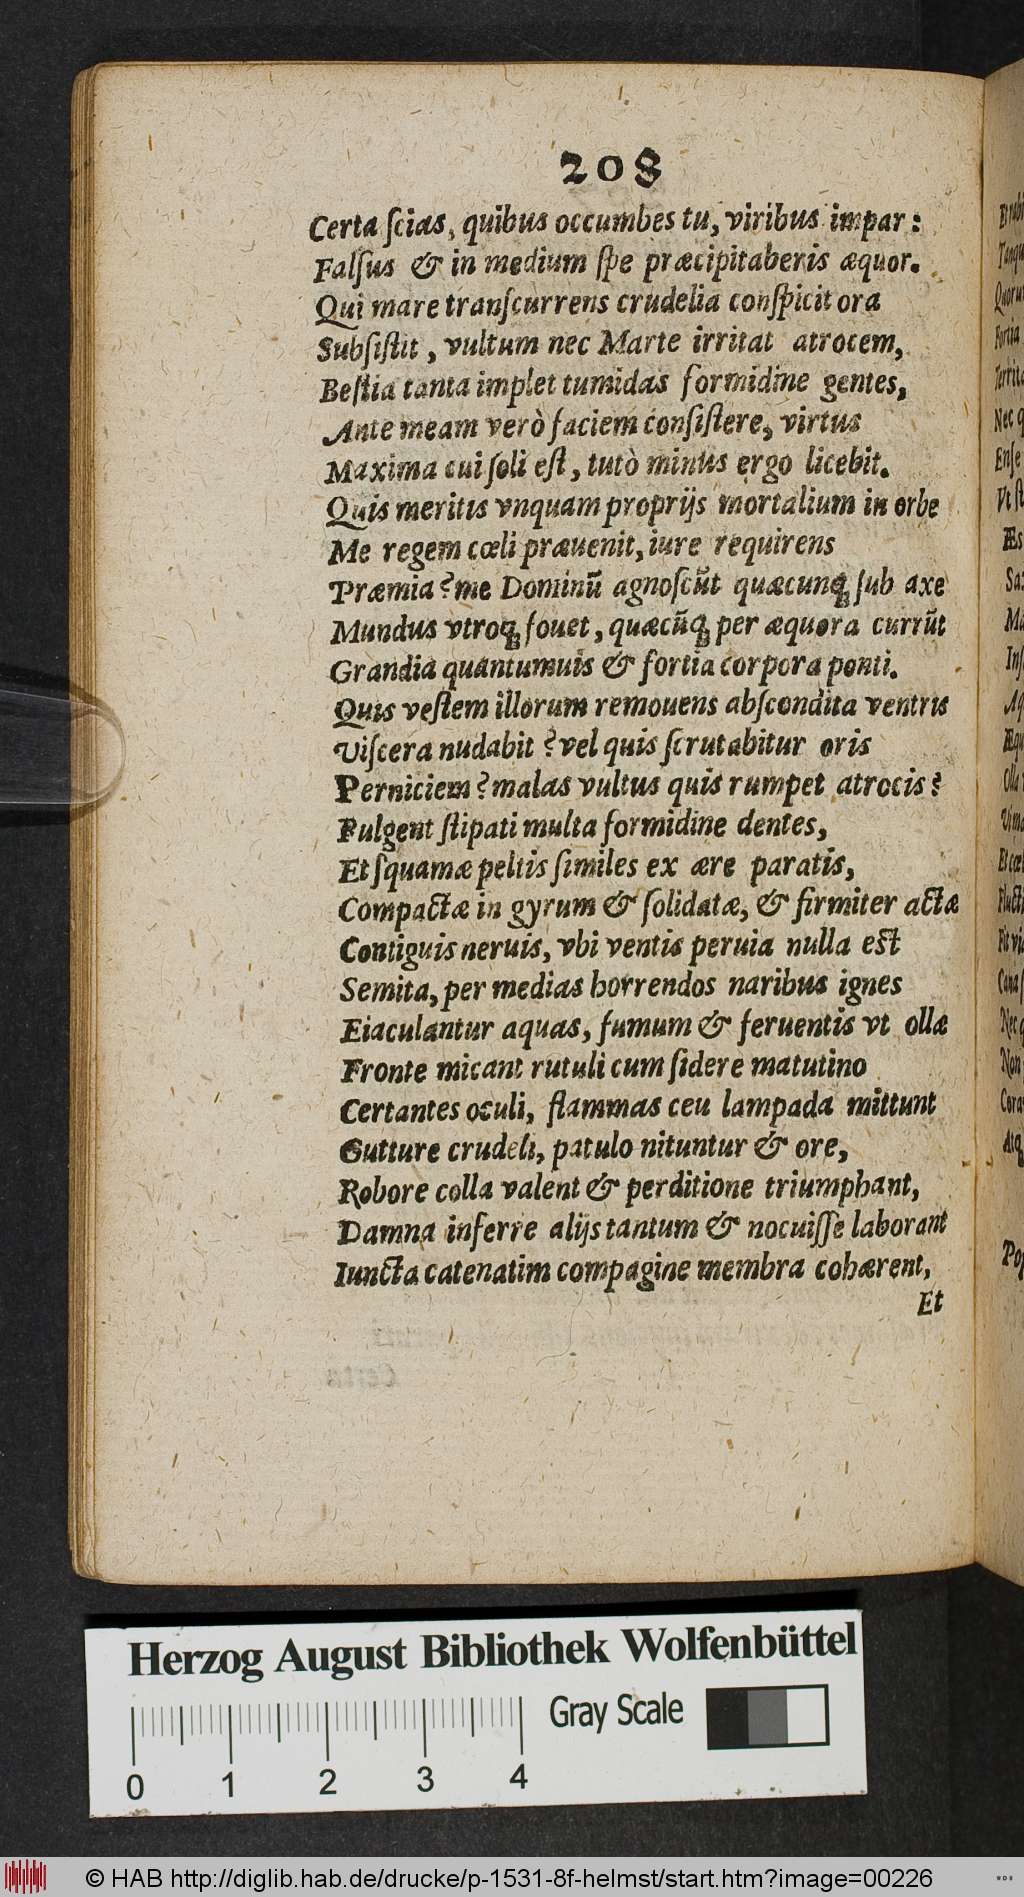 208
Certa ſcias, quibus occumbes tu, viribus impar:
Falſus & in medium ſpe præcipitaberis æquor.
Qui mare tranſcurrens crudelia conſpicit ora
Subſiſtit, vultum nec Marte irritat atrocem,
Beſtia tanta implet tumidas formidine gentes,
Ante meam verò faciem conſiſtere, virtus
Maxima cui ſoli eſt, tutò minus ergo licebit.
Quis meritis vnquam proprijs mortalium in orbe
Me regem cœli præuenit, iure requirens
Præmia? me Dominū agnoſcūt quæcunq; ſub axe
Mundus vtroq; fouet, quæcūq; per æquora currūt
Grandia quantumuis & fortia corpora ponti.
Quis veſtem illorum remouens abſcondita ventris
Viſcera nudabit? vel quis ſcrutabitur oris
Perniciem? malas vultus quis rumpet atrocis?
Fulgent ſtipati multa formidine dentes,
Et ſquamæ peltis ſimiles ex ære paratis,
Compactæ in gyrum & ſolidatæ, & firmiter actæ
Contiguis neruis, vbi ventis peruia nulla est
Semita, per medias horrendos naribus ignes
Eiaculantur aquas, fumum & feruentis vt ollæ
Fronte micant rutuli cum ſidere matutino
Certantes oculi, flammas ceu lampada mittunt
Gutture crudeli, patulo nituntur & ore,
Robore colla valent & perditione triumphant,
Damna inferre alijs tantum & nocuiſſe laborant
Iuncta catenatim compagine membra cohærent,
Et
Herzog August Bibliothek Wolfenbüttel
Gray Scale
0 1 2 3 4
© HAB http://diglib.hab.de/drucke/p-1531-8f-helmst/start.htm?image=00226